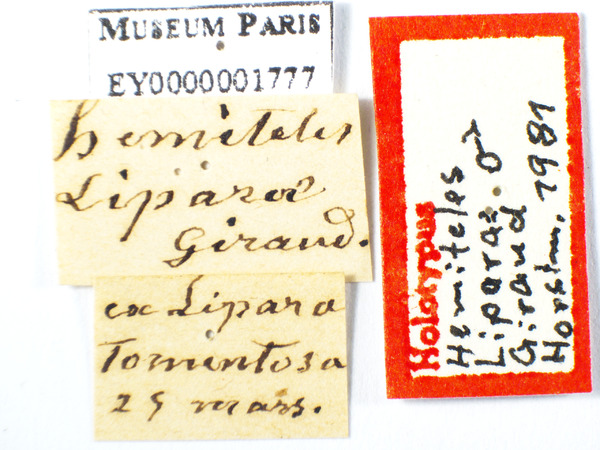 MUSEUM PARIS
EY0000001777
hemiteles
Liparæ
Giraud.
ex Lipara
Tomentosa
25 mars.
Holotypus
Hemiteles
Liparae ♂
Giraud
Horstm, 1981